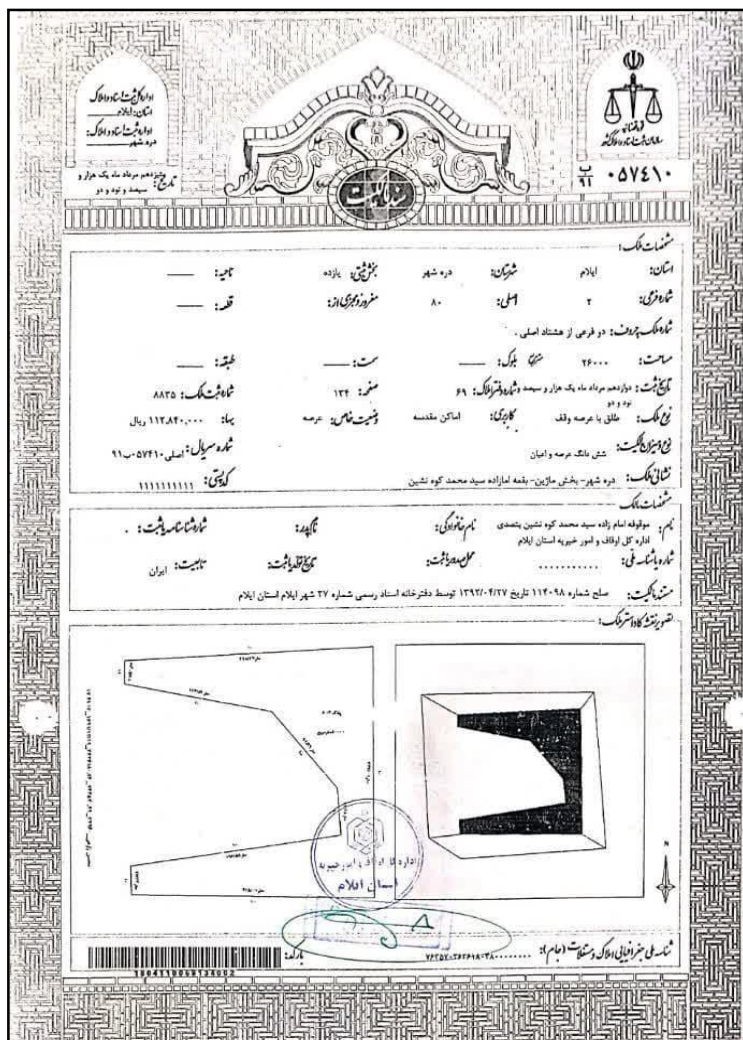 اداره کل ثبت اسناد و املاک
استان: ایلام
اداره ثبت اسناد و املاک:
دره شهر
تاریخ: مرداد ماه یک هزار و
سیصد و نود و دو
قوه قضائیه
سازمان ثبت اسناد و املاک کشور
سند مالکیت
ب ۹۱ ۰۵۷۴۱۰
مشخصات ملک:
استان: ایلام شهرستان: دره شهر بخش ثبتی: یازده ناحیه: ——
شماره فرعی: ۲ اصلی: ۸۰ مفروز و مجزی از: قطعه: ——
شماره ملک بحروف: دو فرعی از هشتاد اصلی .
مساحت: ۲۶۰۰۰ بلوک: —— سمت: —— طبقه: ——
تاریخ ثبت: دوازدهم مرداد ماه یک هزار و سیصد و نود و دو شماره دفتر املاک: ۶۹ صفحه: ۱۳۴ شماره ثبت ملک: ۸۸۳۵
نوع ملک: طلق با عرصه وقف کاربری: اماکن مقدسه وضعیت خاص: عرصه بهاء: ۱۱۲,۸۴۰,۰۰۰ ریال
نوع و میزان مالکیت: شش دانگ عرصه و اعیان شماره سریال: اصلی ۰۵۷۴۱۰ب۹۱
نشانی ملک: دره شهر- بخش ماژین- بقعه امازاده سید محمد کوه نشین کدپستی: ۱۱۱۱۱۱۱۱۱۱
مشخصات مالک:
نام: موقوفه امام زاده سید محمد کوه نشین بتصدی اداره کل اوقاف و امور خیریه استان ایلام نام خانوادگی: نام پدر: شماره شناسنامه یا ثبت: ۰
شماره یا شناسه ملی: ۰۰۰۰۰۰۰۰۰۰۰ محل صدور یا ثبت: تاریخ تولد یا ثبت: تابعیت: ایران
مستند مالکیت: صلح شماره ۱۱۴۰۹۸ تاریخ ۱۳۹۲/۰۴/۲۷ توسط دفترخانه اسناد رسمی شماره ۲۷ شهر ایلام استان ایلام
تصویر نقشه کاداستر ملک:
N
اداره کل اوقاف و امور خیریه
استان ایلام
شناسه ملی جغرافیایی املاک و مستغلات (جام):
بارکد: